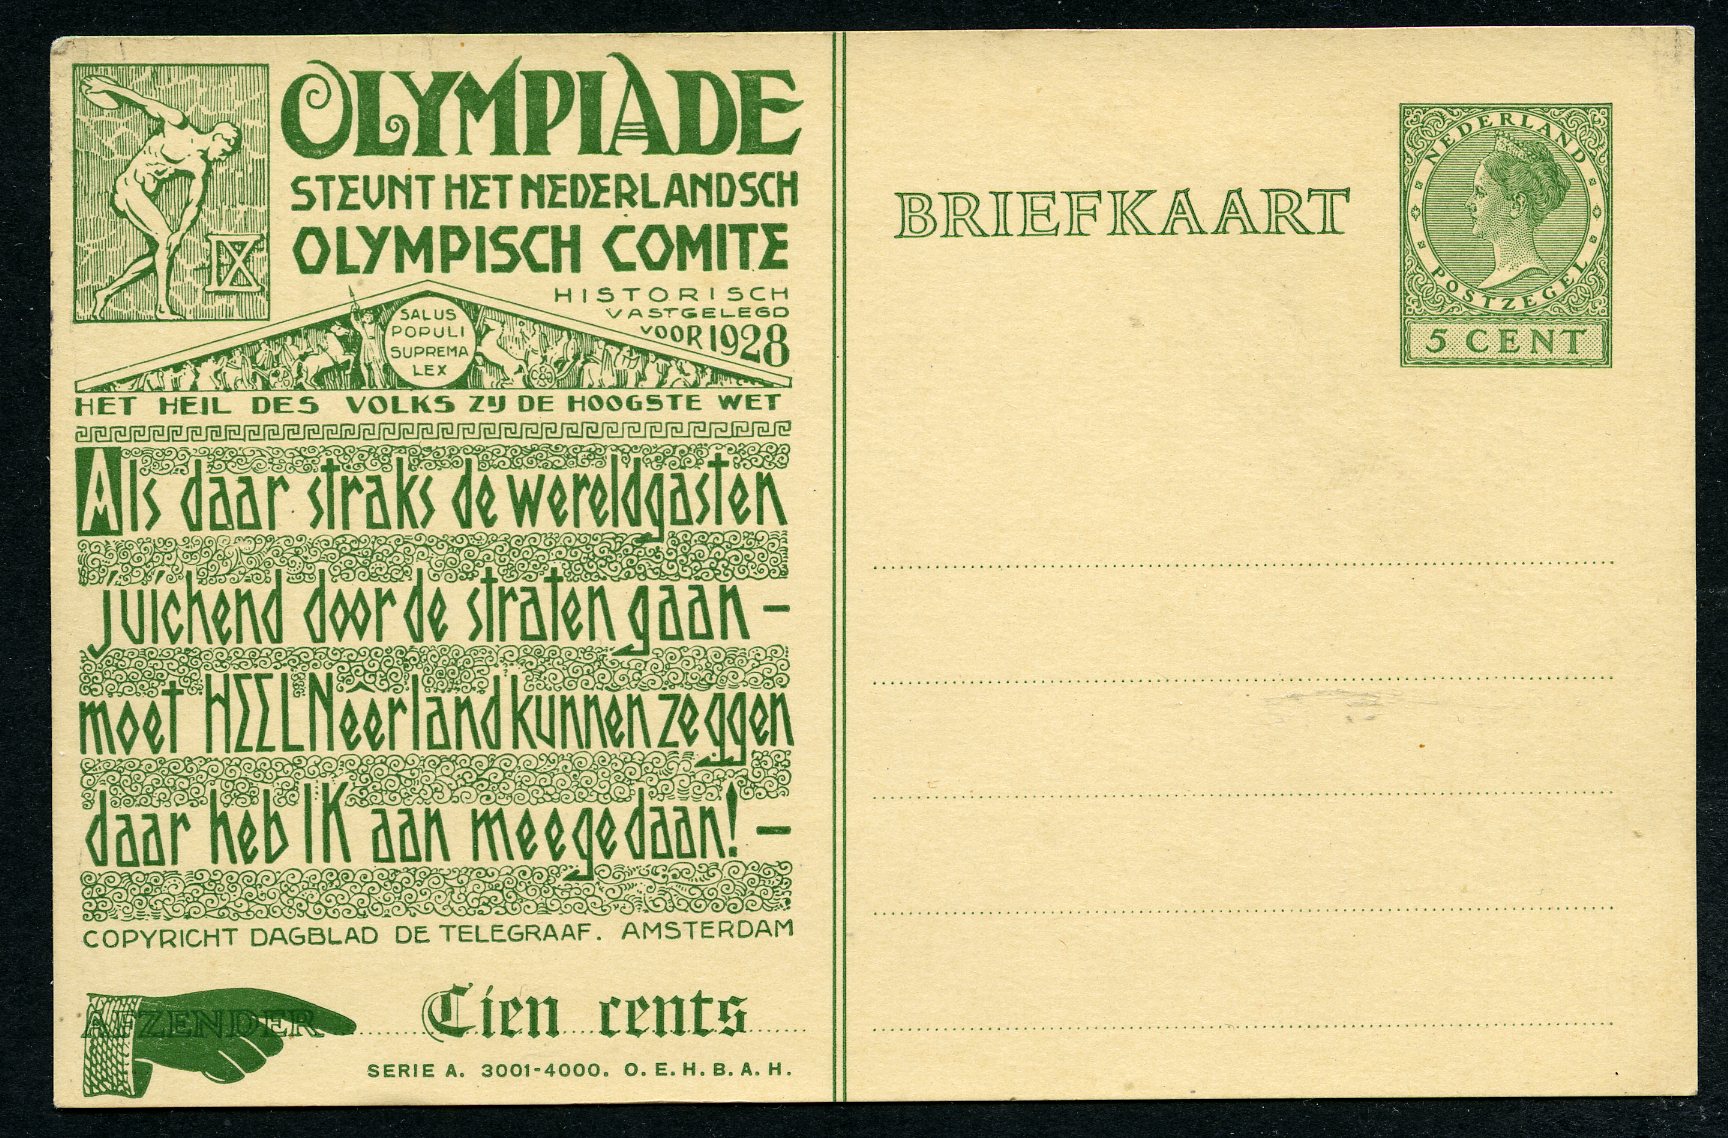 OLYMPIADE
STEUNT HET NEDERLANDSCH
OLYMPISCH COMITE
IX
HISTORISCH
VASTGELEGD
VOOR 1928
SALUS
POPULI
SUPREMA
LEX
HET HEIL DES VOLKS ZIJ DE HOOGSTE WET
Als daar straks de wereldgasten
juichend door de straten gaan –
moet HEEL Neêrland kunnen zeggen
daar heb IK aan meegedaan! –
COPYRICHT DAGBLAD DE TELEGRAAF. AMSTERDAM
AFZENDER
Tien cents
SERIE A. 3001-4000. O. E. H. B. A. H.
BRIEFKAART
NEDERLAND
POSTZEGEL
5 CENT